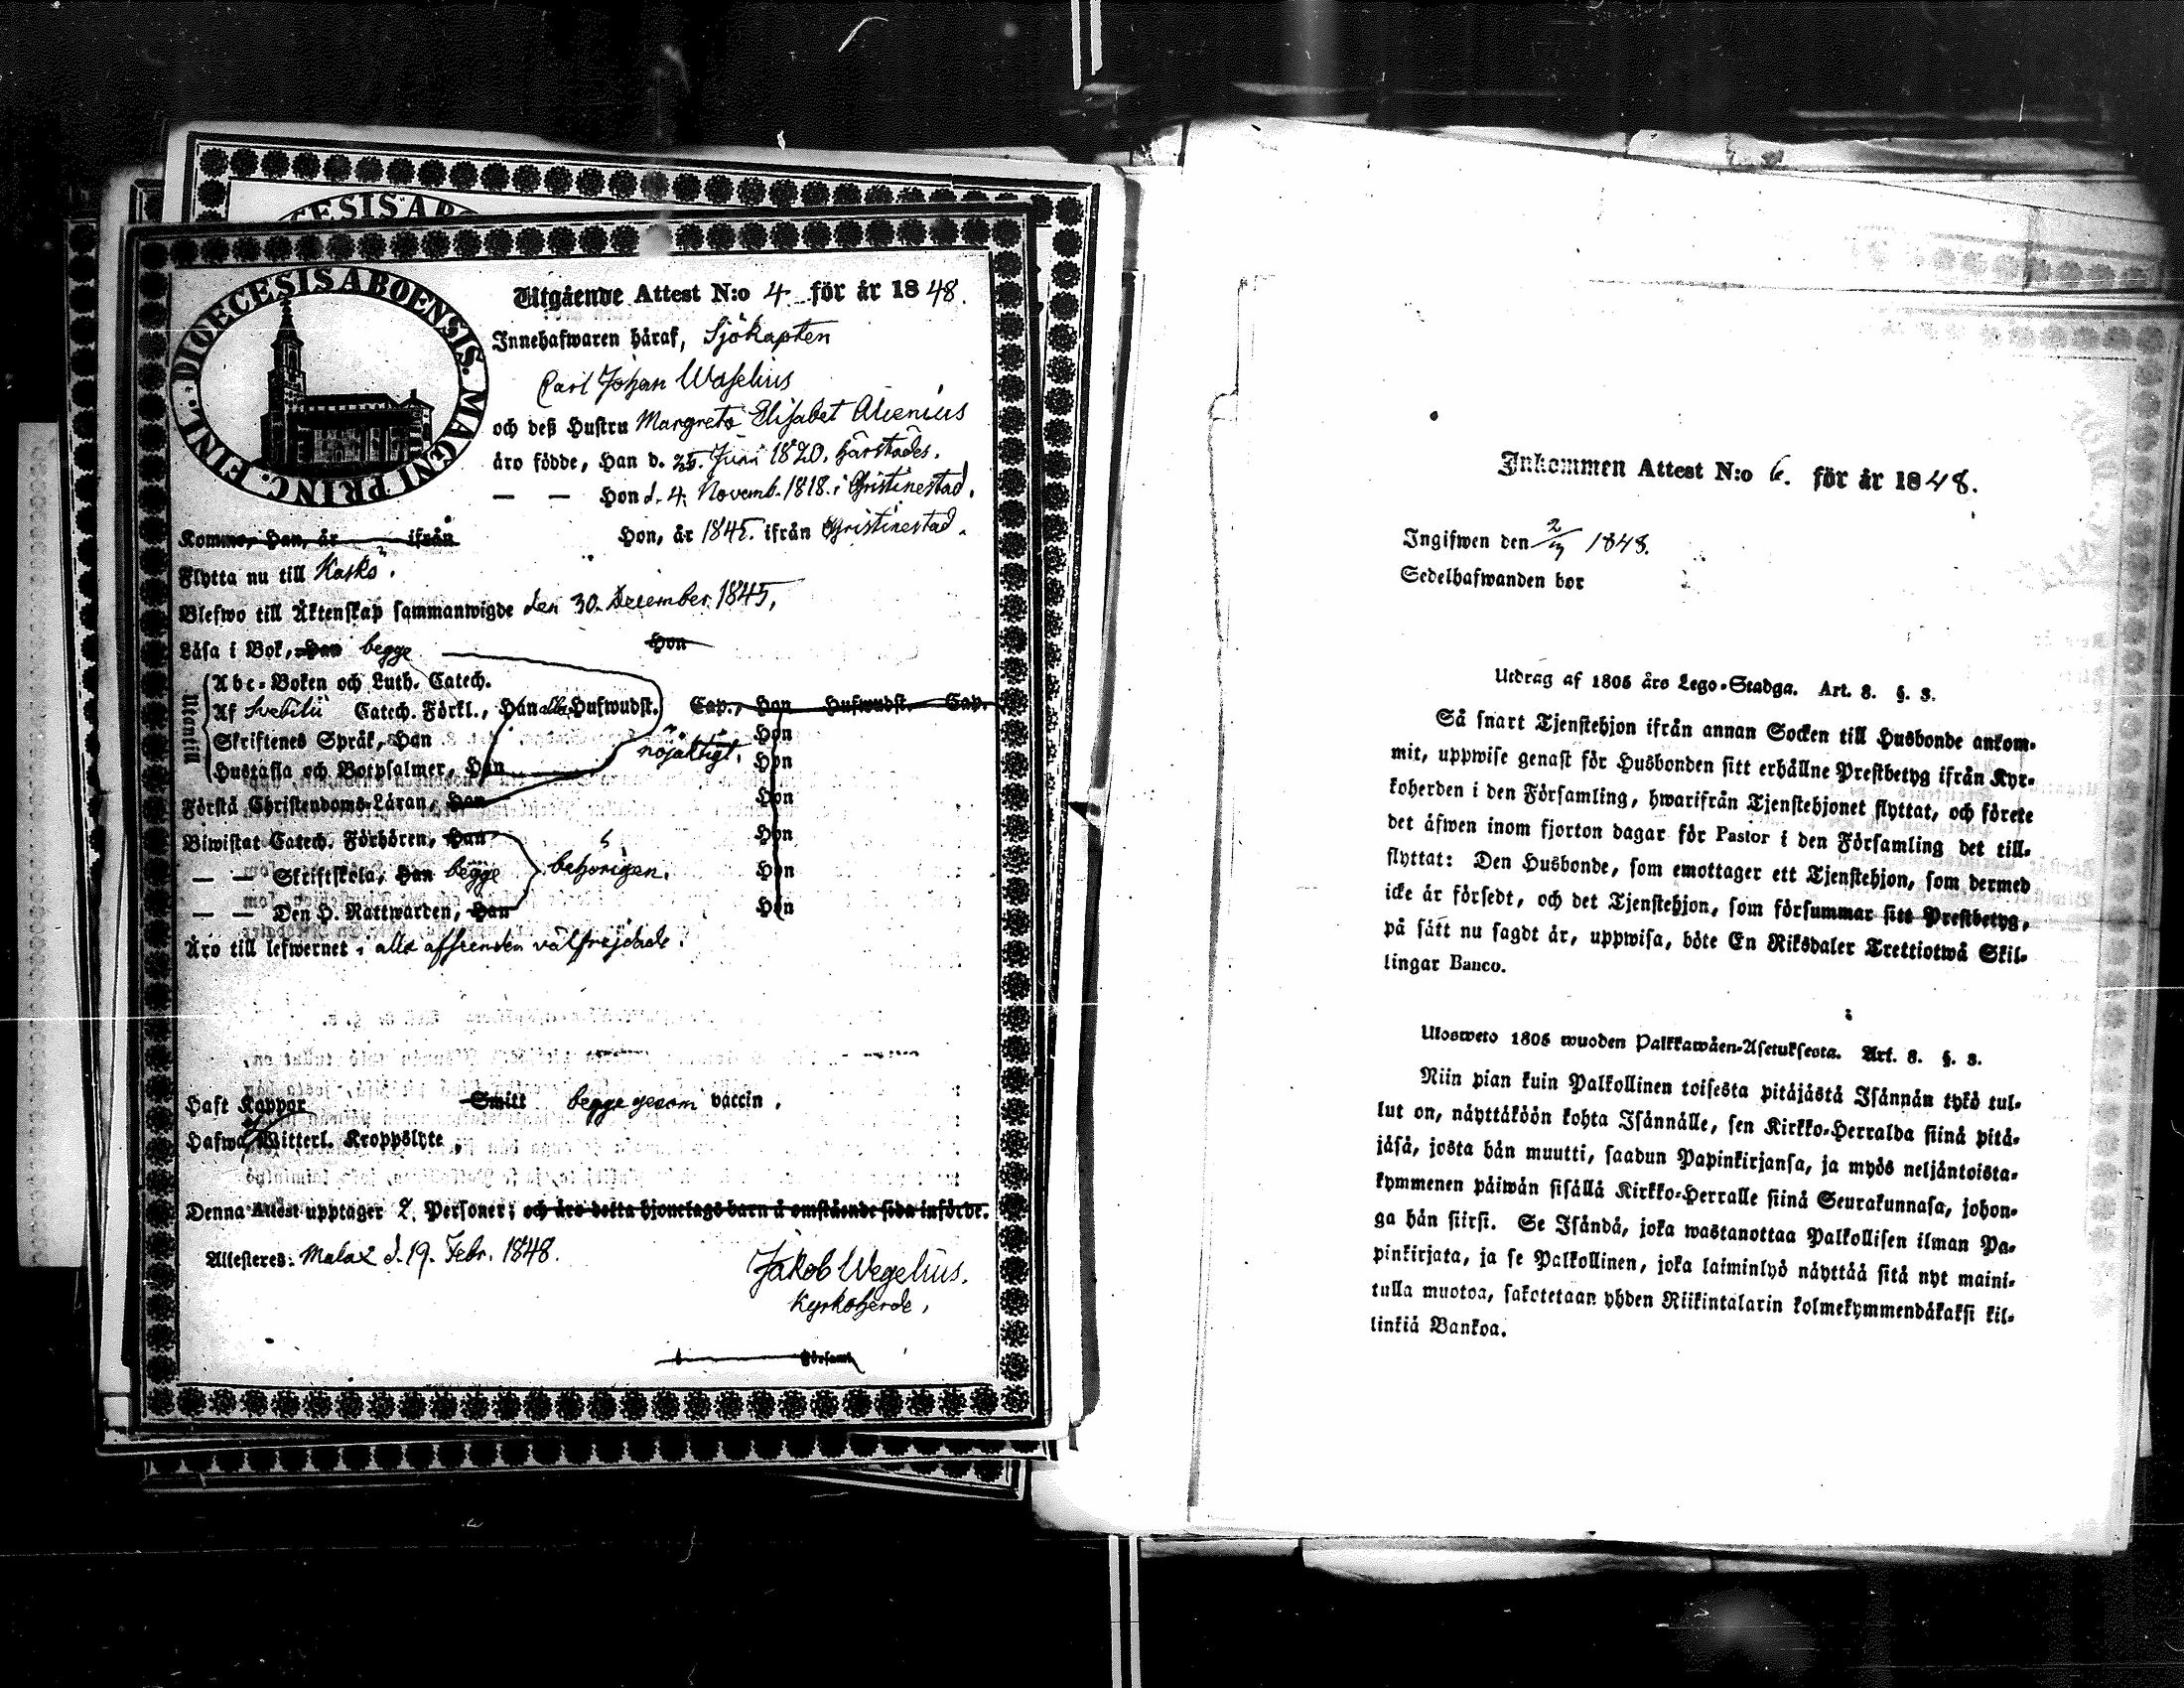 DIOECESIS ABOENSIS. MAGNI PRINC. FINL.
Utgående Attest N:o 4 för år 1848.
Innehafwaren häraf, Sjökapten
Carl Johan Waselius
och deß Hustru Margreta Elisabet Alcenius
äro födde, Han d. 25. Juni 1820. härstädes.
— — Hon d. 4. Novemb. 1818. i Christinestad.
Kommo, Han, år ifrån Hon, år 1845. ifrån Christinestad.
Flytta nu till Kaskö.
Blefwo till Äktenskap sammanwigde den 30. December 1845,
Läsa i Bok, Han begge Hon
Utantill
Abc-Boken och Luth. Catech.
Af Svebilii Catech. Förkl., Han alla Hufwudst. Cap., Hon Hufwudst. Cap.
Skriftenes Språk, Han Hon
nöjaktigt.
Hustafla och Botpsalmer, Han Hon
Förstå Christendoms-Läran, Han Hon
Biwistat Catech. Förhören, Han Hon
— — Skriftskola, Han begge behörigen. Hon
— — Den H. Nattwarden, Han Hon
Äro till lefwernet, i alla afseenden välfrejdade.
Haft Koppor Smitt begge genom vaccin.
Hafwa Witterl. Kroppslyte,
Denna Attest upptager 2. Personer; och äro detta hjonelags barn å omstående sida införde.
Attesteres: Malax d. 19. Febr. 1848.
Jakob Wegelius.
Kyrkoherde,
Församl.
Inkommen Attest N:o 6. för år 1848.
Ingifwen den 1848.
Sedelhafwanden bor
Utdrag af 1805 års Lego-Stadga. Art. 8. §. 3.
Så snart Tjenstehjon ifrån annan Socken till Husbonde ankom-
mit, uppwise genast för Husbonden sitt erhållne Prestbetyg ifrån Kyr-
koherden i den Församling, hwarifrån Tjenstehjonet flyttat, och förete
det äfwen inom fjorton dagar för Pastor i den Församling det till-
flyttat: Den Husbonde, som emottager ett Tjenstehjon, som dermed
icke är försedt, och det Tjenstehjon, som försummar sitt Prestbetyg,
på sätt nu sagdt är, uppwisa, böte En Riksdaler Trettiotwå Skil-
lingar Banco.
Ulosweto 1805 wuoden Palkkawäen-Asetuksesta. Art. 8. §. 3.
Niin pian kuin Palkollinen toisesta pitäjästä Isännän tykö tul-
lut on, näyttäköön kohta Isännälle, sen Kirkko-Herralda siinä pitä-
jäsä, josta hän muutti, saadun Papinkirjansa, ja myös neljäntoista-
kymmenen päiwän sisällä Kirkko-Herralle siinä Seurakunnasa, johon-
ga hän siirsi. Se Isändä, joka wastanottaa Palkollisen ilman Pa-
pinkirjata, ja se Palkollinen, joka laiminlyö näyttää sitä nyt maini-
tulla muotoa, sakotetaan yhden Riikintalarin kolmekymmendäkaksi kil-
linkiä Bankoa.